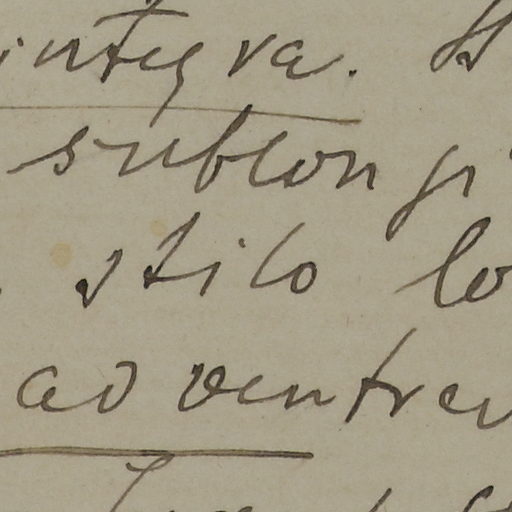 integra.
sublongi
stilo lo
ad ventre